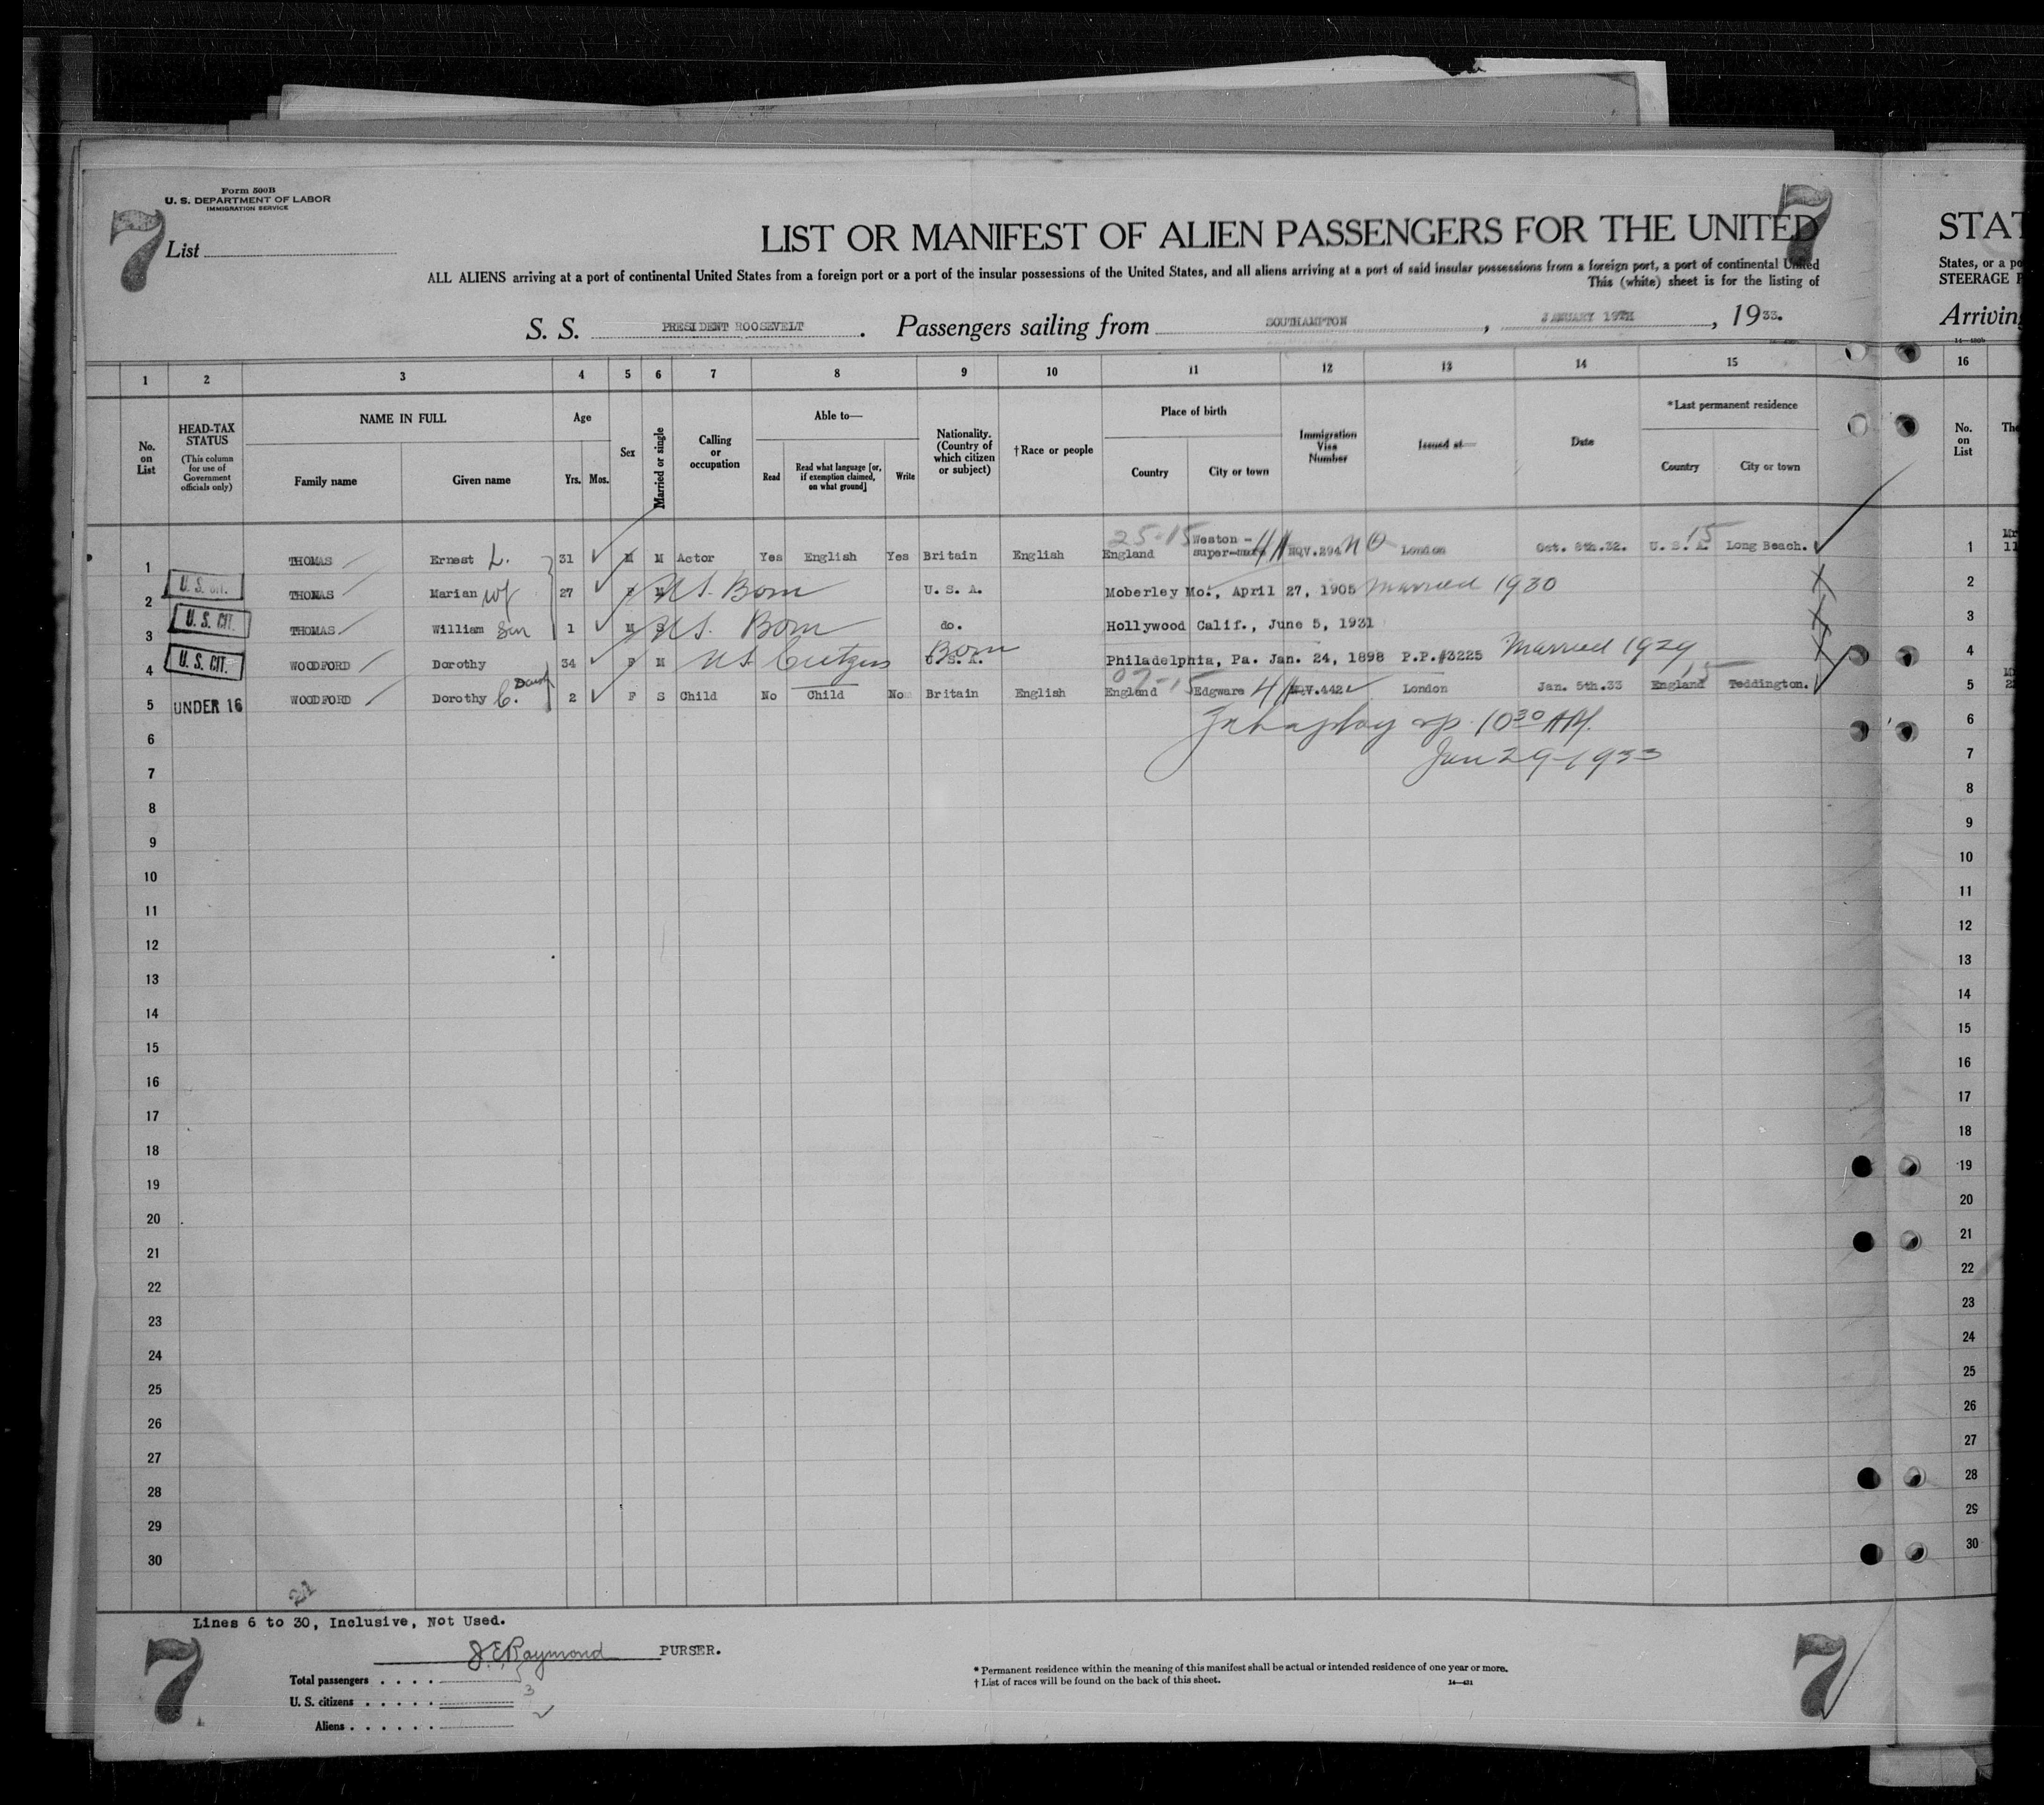 Form 500B
U. S. DEPARTMENT OF LABOR
IMMIGRATION SERVICE
7 7
List
LIST OR MANIFEST OF ALIEN PASSENGERS FOR THE UNITED STAT
ALL ALIENS arriving at a port of continental United States from a foreign port or a port of the insular possessions of the United States, and all aliens arriving at a port of said insular possessions from a foreign port, a port of continental United States, or a po
This (white) sheet is for the listing of STEERAGE P
S. S. PRESIDENT ROOSEVELT. Passengers sailing from SOUTHAMPTON, JANUARY 19TH, 1933. Arriving
1 2 3 4 5 6 7 8 9 10 11 12 13 14 15 16
No. on List
HEAD-TAX STATUS
(This column for use of Government officials only)
NAME IN FULL
Family name Given name
Age
Yrs. Mos.
Sex
Married or single
Calling or occupation
Able to—
Read Read what language [or, if exemption claimed, on what ground] Write
Nationality. (Country of which citizen or subject)
†Race or people
Place of birth
Country City or town
Immigration Visa Number
Issued at—
Date
*Last permanent residence
Country City or town
No. on List
1 THOMAS Ernest L. 31 M M Actor Yes English Yes Britain English 25-15 England Weston-super-mare NQV.294 NO London Oct. 8th.32. U. S. A. 15 Long Beach. 1
2 U. S. CIT. THOMAS Marian wf 27 F M US. Born U. S. A. Moberley Mo., April 27, 1905 Married 1930 2
3 U. S. CIT. THOMAS William Son 1 M S US. Born do. Hollywood Calif., June 5, 1931 3
4 U. S. CIT. WOODFORD Dorothy 34 F M US Citizen Born U. S. A. Philadelphia, Pa. Jan. 24, 1898 P.P.#3225 Married 1929 4
5 UNDER 16 WOODFORD Dorothy C. Daut 2 F S Child No Child No Britain English 07-15 England Edgware NQV.442 London Jan. 5th.33 England 15 Teddington. 5
6 10 30 AM. 6
7 Jan 29-1933 7
8 8
9 9
10 10
11 11
12 12
13 13
14 14
15 15
16 16
17 17
18 18
19 19
20 20
21 21
22 22
23 23
24 24
25 25
26 26
27 27
28 28
29 29
30 30
21
Lines 6 to 30, Inclusive, Not Used.
J.E.Raymond PURSER.
7 7
Total passengers
U. S. citizens 3
Aliens 2
* Permanent residence within the meaning of this manifest shall be actual or intended residence of one year or more.
† List of races will be found on the back of this sheet.